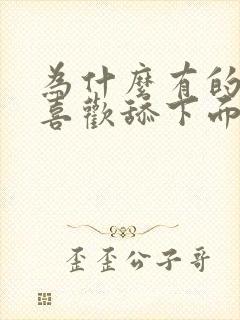 為什麼有的
喜歡舔下面
歪歪公子哥